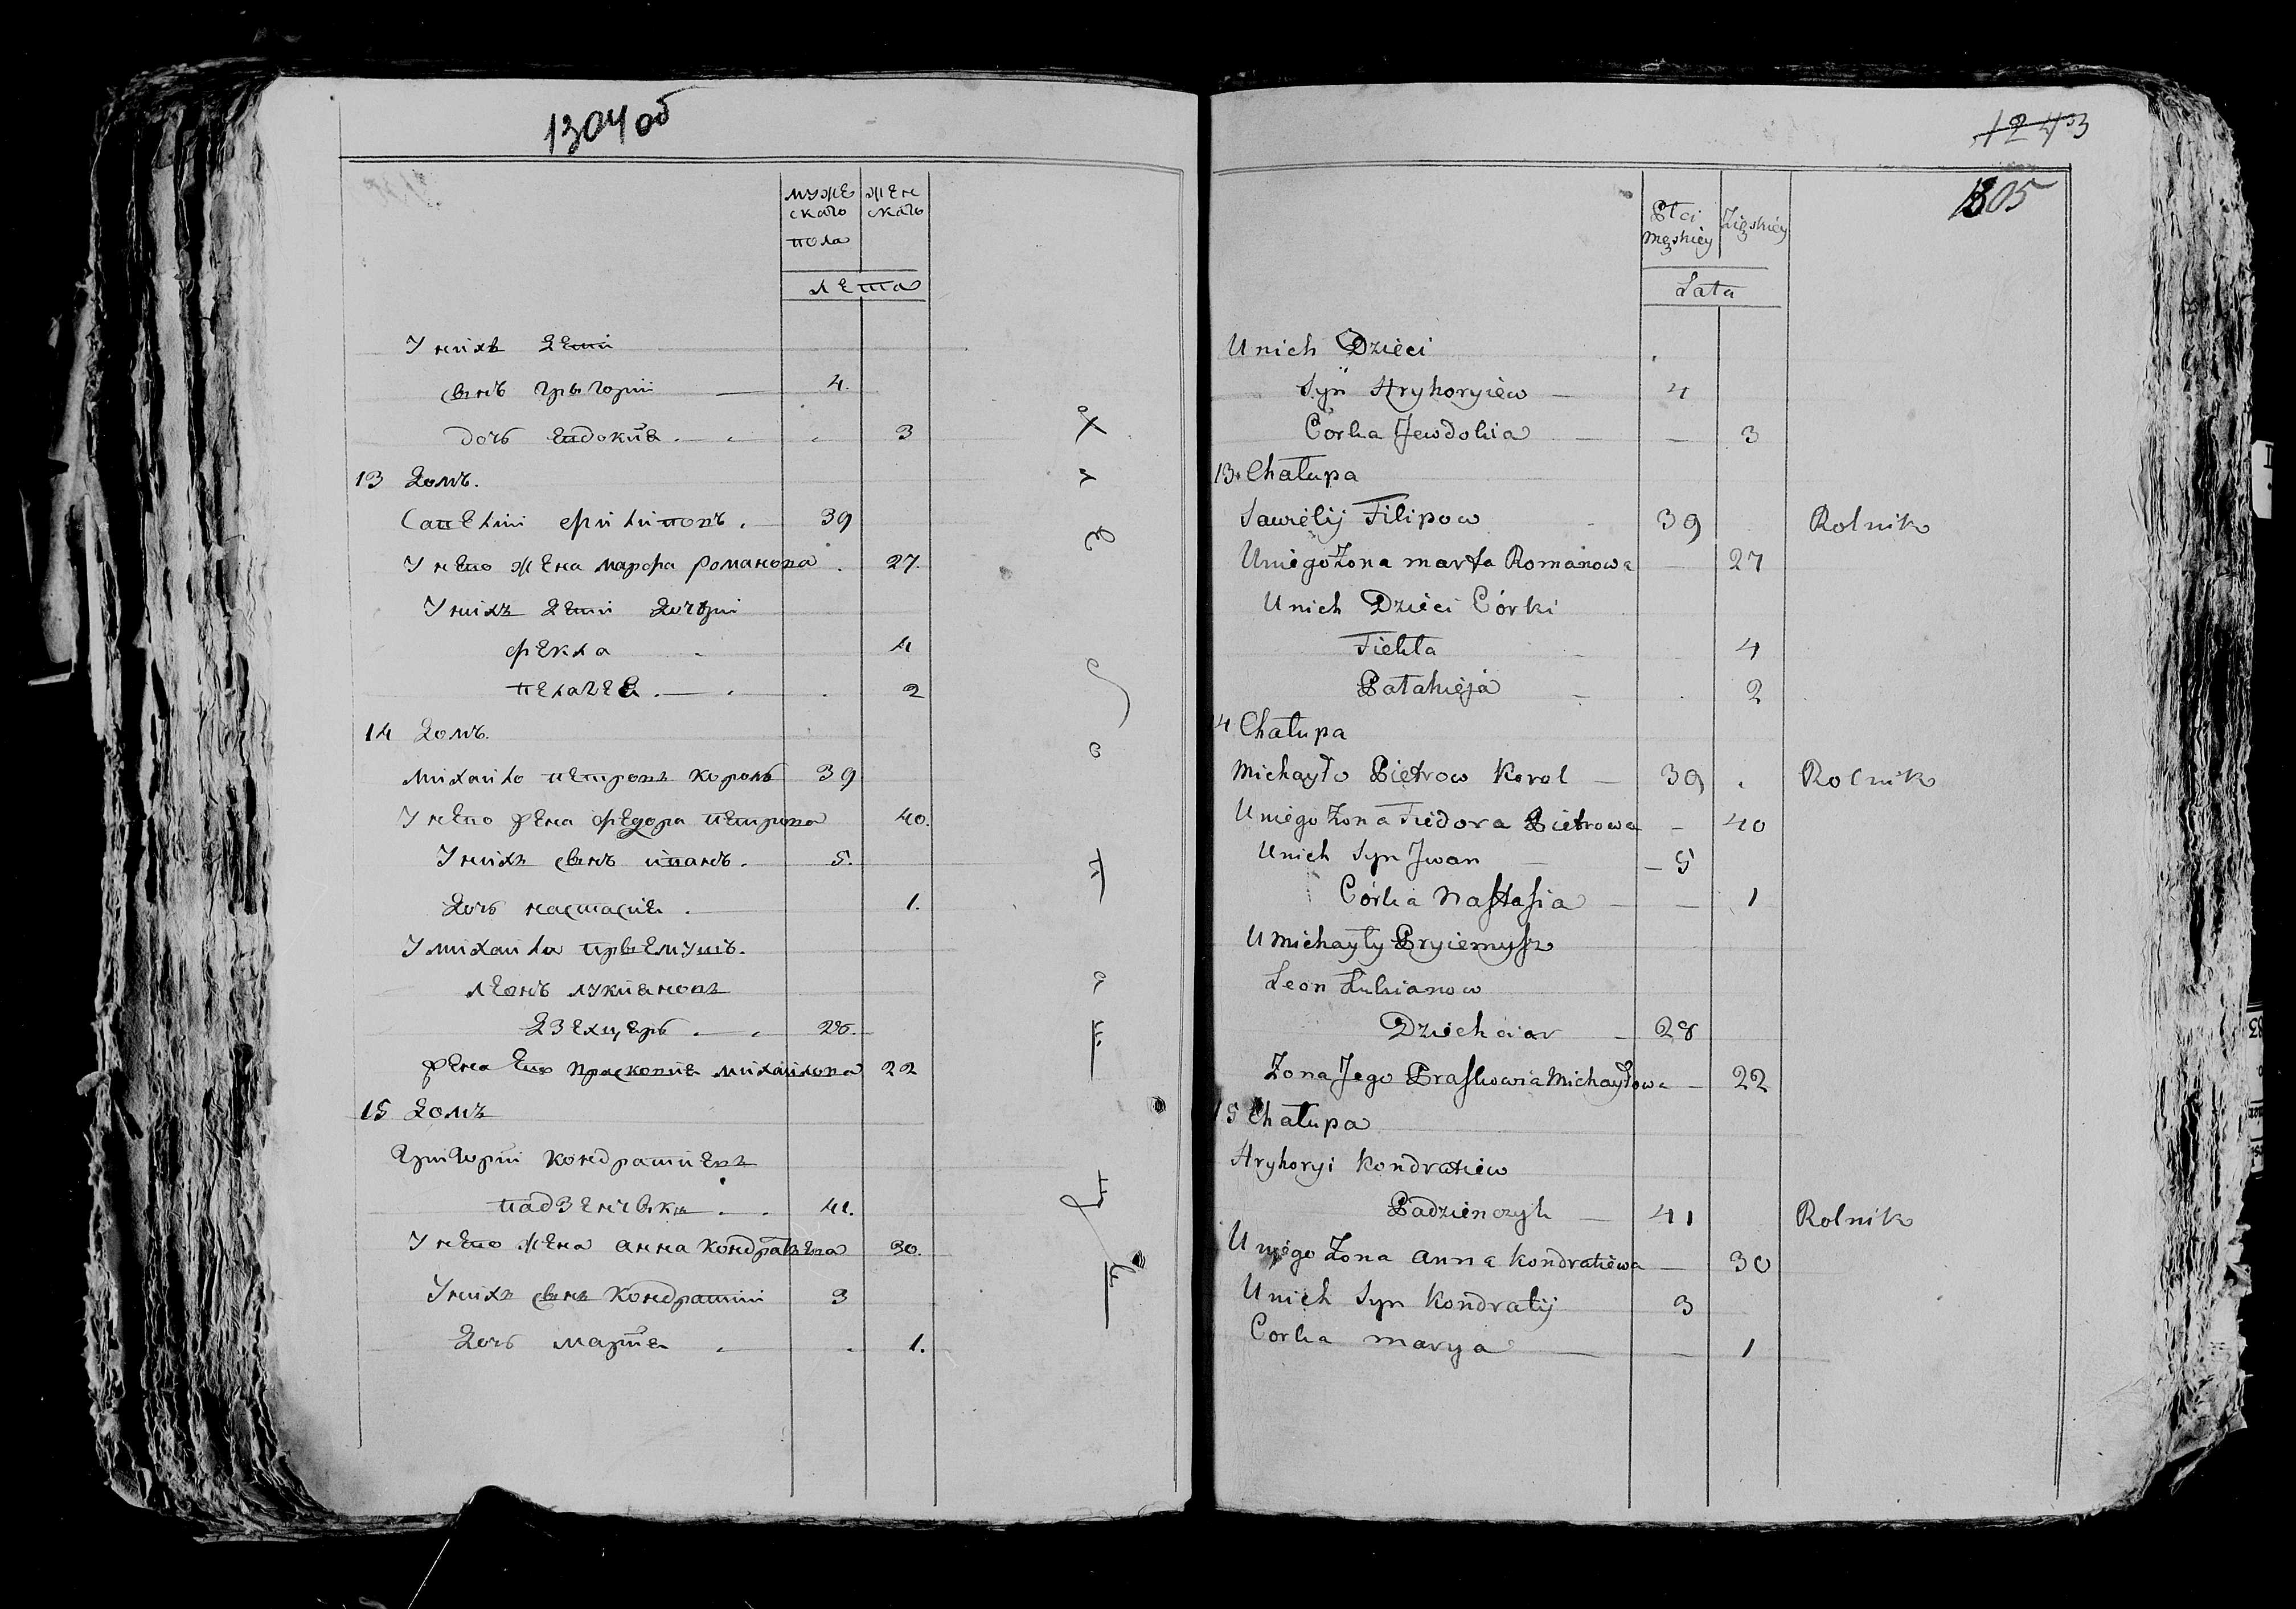 1304 об
муже женскаго
скаго
пола
лета
У нихъ дети
сынъ грыгорий 4.
дочь евдокия 3
13 домъ.
Савелий филиповъ. 39
У него жена марфа романова. 27.
У нихъ дети дочери
фекла 4
пелагея 2
14 домъ.
михайло петровъ король 39
У него жена федора петрова 40.
У нихъ сынъ иванъ. 5.
дочь настасия. 1.
У михайла прыемышъ.
леонъ лукияновъ
дзехцеръ 28.
жена его прасковия михайлова 22
15 домъ
григорий кондратиевъ
падзенчыкъ 41.
У него жена анна кондратьева 30.
У нихъ сынъ кондратий 3
дочь мария 1.
1243
1305
Płci Żięskiey
Męskiey
Lata
U nich Dzieci
Syn Hryhoryiew 4
Córka Jewdokia 3
13 Chałupa
Sawielij Filipow 39 Rolnik
U niego Żona marfa Romanowa 27
U nich Dzieci Córki
Fiekła 4
Pałahieja 2
14 Chałupa
Michayło Pietrow Korol 39 Rolnik
U niego Żona Fiedora Pietrowa 40
U nich Syn Jwan 5
Córka Nastasia 1
U Michayły Pryiemysz
Leon Łukianow
Dziechciar 28
Żona Jego Praskowia Michayłowa 22
15 Chałupa
Hryhoryi Kondratiew
Padzienczyk 41 Rolnik
U niego Żona Anna Kondratiewa 30
U nich Syn Kondratij 3
Corka marya 1